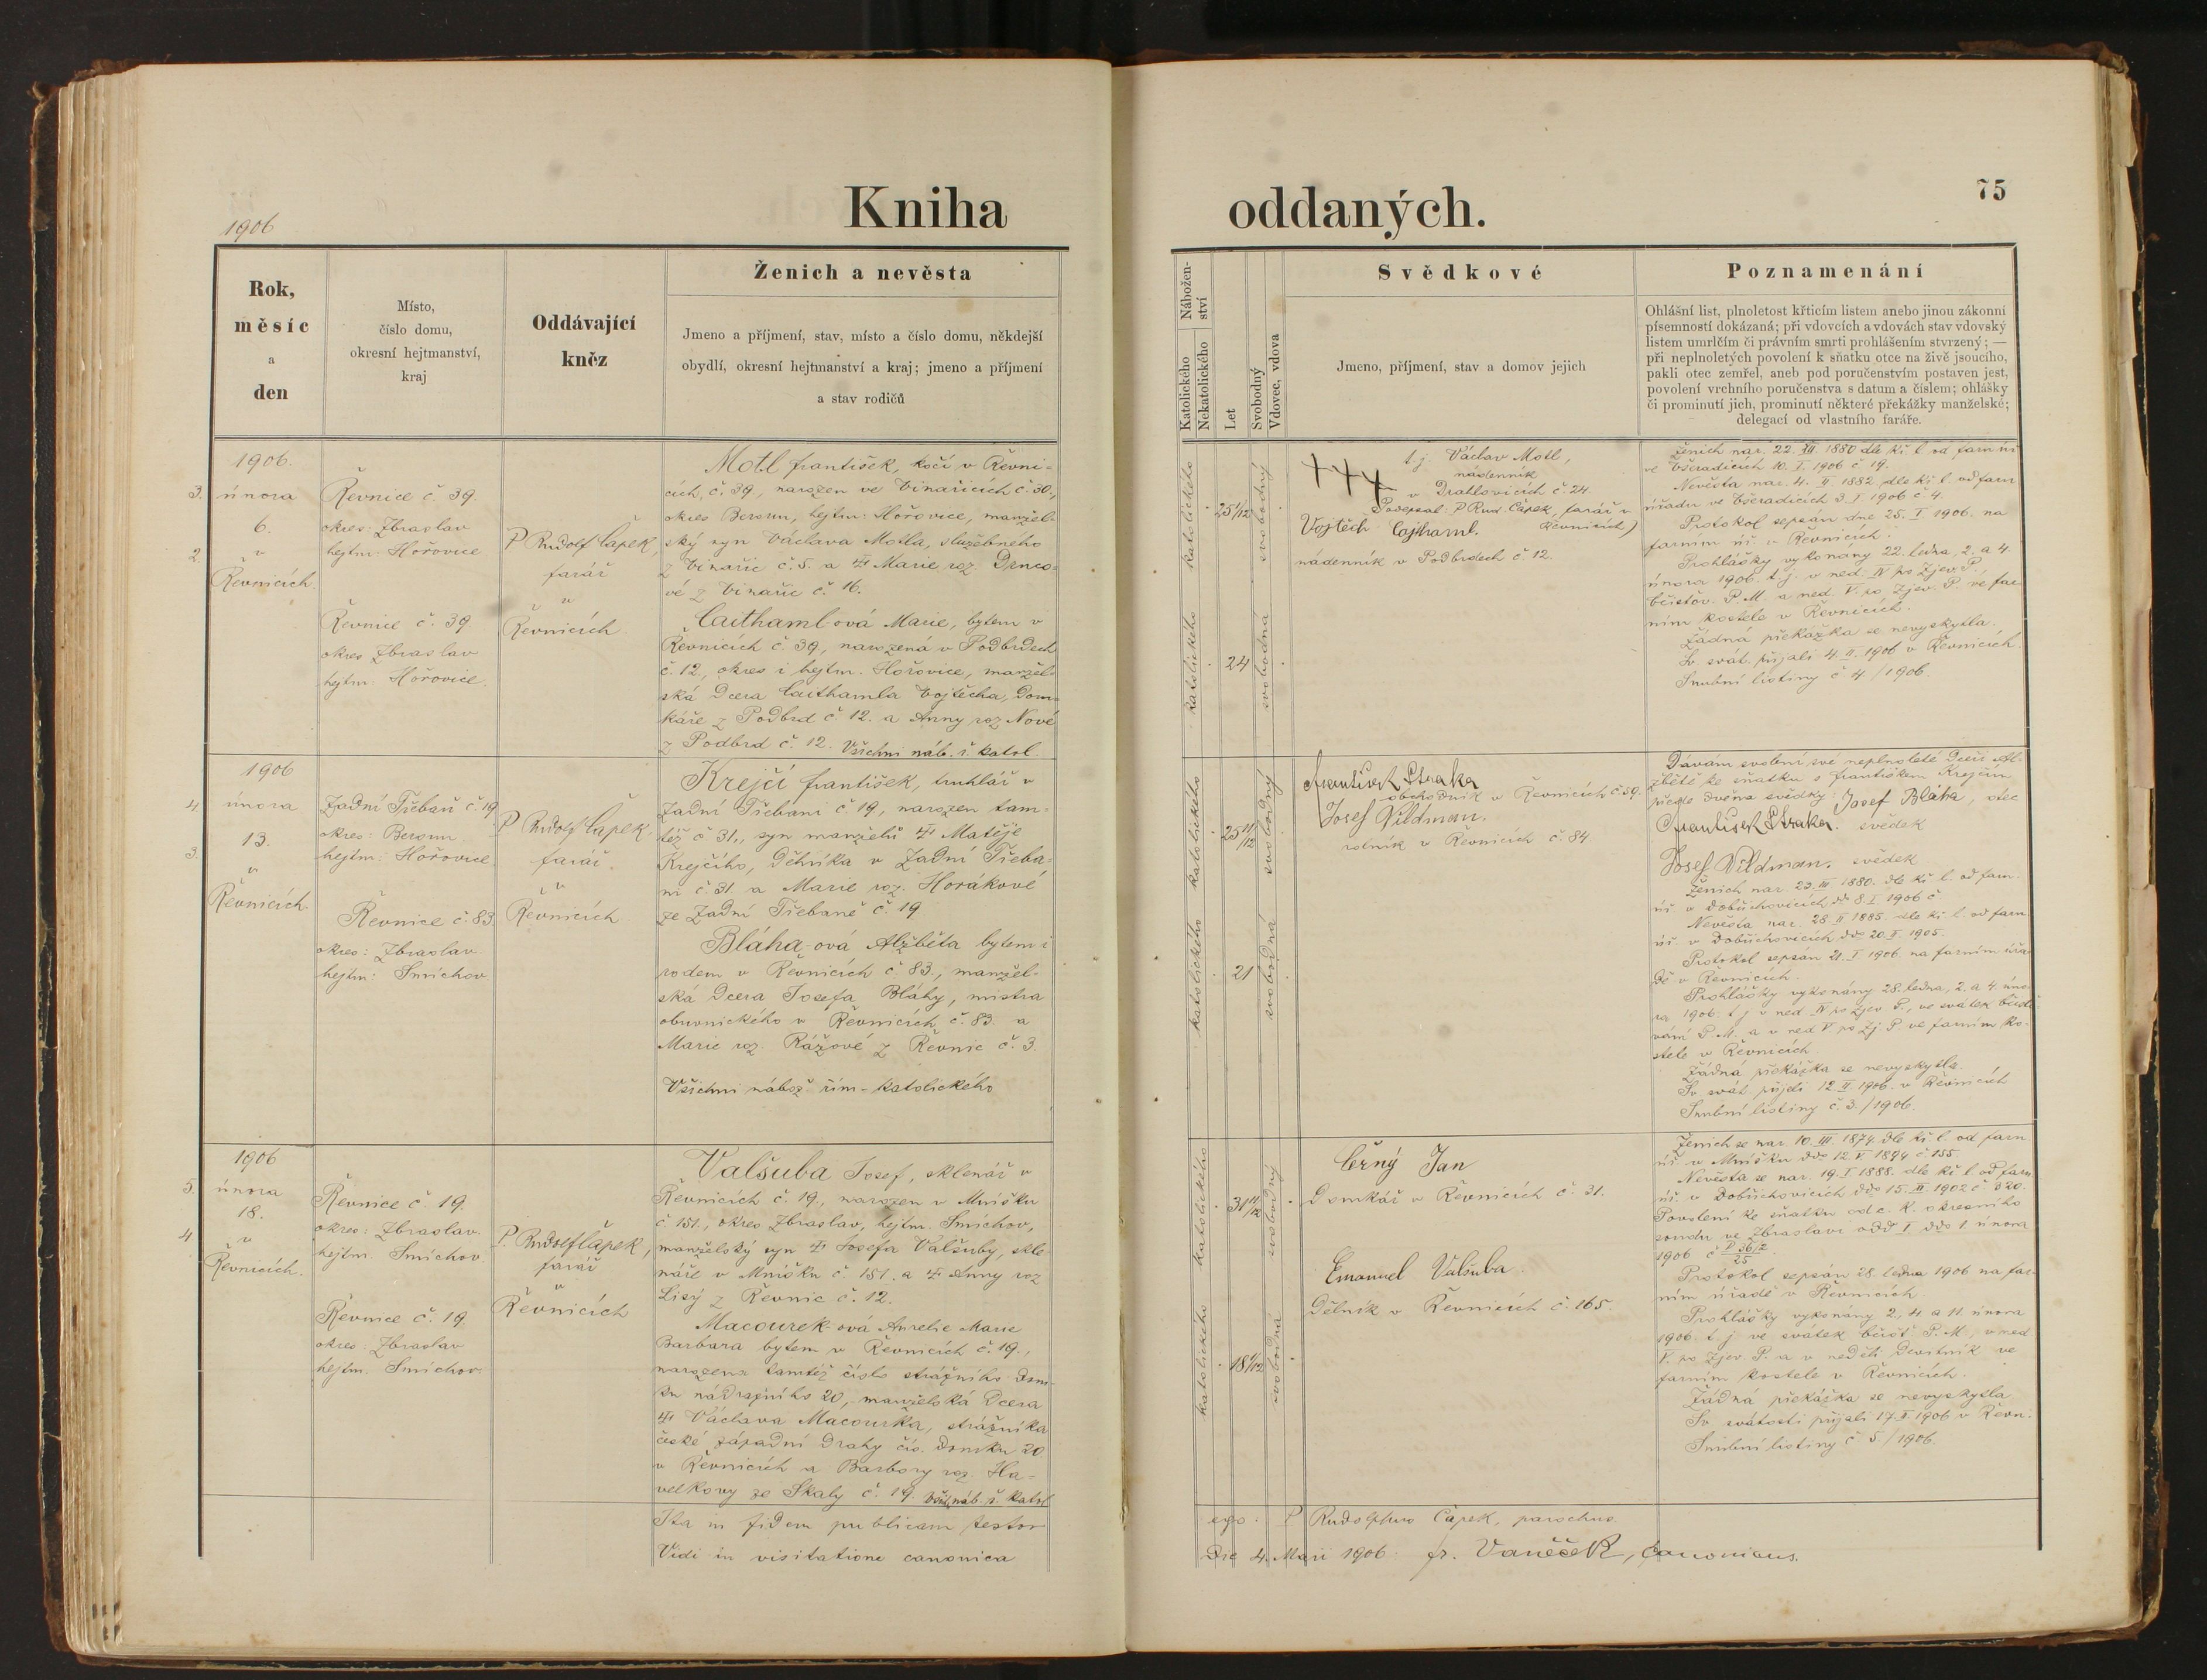 1906
Kniha
oddaných.
75
Rok,
měsíc
a
den
Místo,
číslo domu,
okresní hejtmanství,
kraj
Oddávající
kněz
Ženich a nevěsta
Jmeno a příjmení, stav, místo a číslo domu, někdejší
obydlí, okresní hejtmanství a kraj; jmeno a příjmení
a stav rodičů
Nábožen-
ství
Katolického
Nekatolického
Let
Svobodný
Vdovec, vdova
Svědkové
Jmeno, příjmení, stav a domov jejich
Poznamenání
Ohlášní list, plnoletost křticím listem anebo jinou zákonní
písemností dokázaná; při vdovcích a vdovách stav vdovský
listem umrlčím či právním smrti prohlášením stvrzený; —
při neplnoletých povolení k sňatku otce na živě jsoucího,
pakli otec zemřel, aneb pod poručenstvím postaven jest,
povolení vrchního poručenstva s datum a číslem; ohlášky
či prominutí jich, prominutí některé překážky manželské;
delegací od vlastního faráře.
1906.
3. února
6.
2. v
Řevnicích.
Řevnice č. 39.
okres: Zbraslav
hejtm: Hořovice
Řevnice č. 39
okres Zbraslav
hejtm. Hořovice.
P. Rudolf Čapek,
farář
v
Řevnicích
Motl František, kočí v Řevni-
cích, č. 39, narozen ve Vinařicích č. 30.,
okres Beroun, hejtm: Hořovice, manžel-
ský syn Václava Motla, služebného
z Vinařic č. 5. a Marie roz.
z Vinařic č. 16.
Caithaml-ová Marie, bytem v
Řevnicích č. 39, narozená v Podbrdech
č. 12., okres i hejtm. Hořovice, manžel-
ská dcera Caithamla Vojtěcha, dom-
káře z Podbrd č. 12. a Anny roz Nové
z Podbrd č. 12. Všichni náb. ř. katol.
katolického
25 1/12
svobodný
katolického
24
svobodná
+++ t. j. Václav Motl,
nádenník
v Drahlovicích č. 24.
Podepsal: P. Rud. Čapek, farář v
Řevnicích)
Vojtěch Cajthaml.
nádenník v Podbrdech č. 12.
Ženich nar. 22. XII. 1880 dle kř. l. od farn. úř.
ve Všeradicích 10. I. 1906 č 19.
Nevěsta nar. 4. II 1882 dle kř l. od farn
úřadu ve Všeradicích 3. I 1906 č 4.
Protokol sepsán dne 25. I 1906. na
farním úř. v Řevnicích.
Prohlášky vykonány 22. ledna, 2. a 4.
února 1906. t. j. v ned. IV po Zjev. P.
Očisťov. P. M. a ned. V. po Zjev. P. ve far-
ním kostele v Řevnicích.
Žádná překážka se nevyskytla.
Sv. svát. přijali 4. II. 1906 v Řevnicích.
Snubní listiny č 4./1906.
1906
4. února
13.
3. v
Řevnicích.
Zadní Třebaň č. 19
okres: Beroun
hejtm: Hořovice
Řevnice č. 83.
okres: Zbraslav.
hejtm: Smíchov
P. Rudolf Čapek,
farář
v
Řevnicích
Krejčí František, truhlář v
Zadní Třebani č. 19, narozen tam-
též č 31., syn manželů Matěje
Krejčího, dělníka v Zadní Třeba-
ni č. 31 a Marie roz. Horákové
ze Zadní Třebaně č. 19
Bláha-ová Alžběta bytem i
rodem v Řevnicích č. 83., manžel-
ská dcera Josefa Bláhy, mistra
obuvnického v Řevnicích č. 83. a
Marie roz. Rážové z Řevnic č. 3.
Všichni nábož. řím-katolického
katolického
25 11/12
svobodný
katolického
21
svobodná
František Straka
obchodník v Řevnicích č. 59.
Josef Vildman.
rolník v Řevnicích č. 84
Dávám svolení své neplnoleté dceři Al-
žbětě ke sňatku s Františkem Krejčím
přede dvěma svědky: Josef Bláha, otec
František Straka. svědek
Josef Vildman. svědek
Ženich nar. 23. III 1880. dle kř l. od farn.
úř. v Dobřichovicích dto 8. I 1906 č
Nevěsta nar. 28. II 1885. dle kř l. od farn.
úř. v Dobřichovicích dto 20. I. 1905.
Protokol sepsán 21. I 1906. na farním úřa-
dě v Řevnicích.
Prohlášky vykonány 28. ledna, 2. a 4. úno-
ra 1906. t j v ned. IV po Zjev P., ve svátek Očisťo-
vání P. M. a v ned V po Zj. P. ve farním ko-
stele v Řevnicích
Žádná překážka se nevyskytla.
Sv svát přijali 12. II 1906. v Řevnicích
Snubní listiny č. 3./1906.
1906
5. února
18.
4. v
Řevnicích.
Řevnice č. 19.
okres: Zbraslav.
hejtm. Smíchov.
Řevnice č. 19.
okres: Zbraslav
hejtm. Smíchov.
P. Rudolf Čapek,
farář
v
Řevnicích
Valšuba Josef, sklenář v
Řevnicích č. 19, narozen v Mníšku
č 151., okres Zbraslav, hejtm. Smíchov,
manželský syn Josefa Valšuby, skle-
náře v Mníšku č. 151. a Anny roz
Lisý z Řevnic č. 12.
Macourek-ová Aurelie Marie
Barbara bytem v Řevnicích č. 19.,
narozena tamtéž číslo strážního dom-
ku nádražního 20, manželská dcera
Václava Macourka, strážníka
české západní dráhy čís. domku 20
v Řevnicích a Barbory roz. Ha-
velkovy ze Skaly č. 19. Všich náb. ř. katol
katolického
31 11/12
svobodný
katolického
18 1/12
svobodná
Černý Jan
Domkář v Řevnicích č. 31.
Emanuel Valsuba.
dělník v Řevnicích č. 165.
Ženich se nar 10. III. 1874. dle kř l. od farn
úř. v Mníšku dto 12. V 1894 č. 155
Nevěsta se nar. 19. I 1888. dle kř. l od farn
úř. v Dobřichovicích dto 15. III. 1902 č 320.
Povolení ke sňatku od c. k. okresního
soudu ve Zbraslavi odd I dto 1. února
1906 č P 36/2
25
Protokol sepsán 28. ledna 1906 na far-
ním úřadě v Řevnicích.
Prohlášky vykonány 2, 4 a 11. února
1906. t j ve svátek Očist. P. M., v ned
V. po Zjev. P. a v neděli Devítník ve
farním kostele v Řevnicích.
Žádná překážka se nevyskytla
Sv svátosti přijali 17. II 1906 v Řevn.
Snubní listiny č 5/1906.
Ita in fidem publicam testor
ego. P Rudolphus Čapek, parochus.
Vidi in visitatione canonica
Die 4. Maii 1906. fr. Vaněček, canonicus.